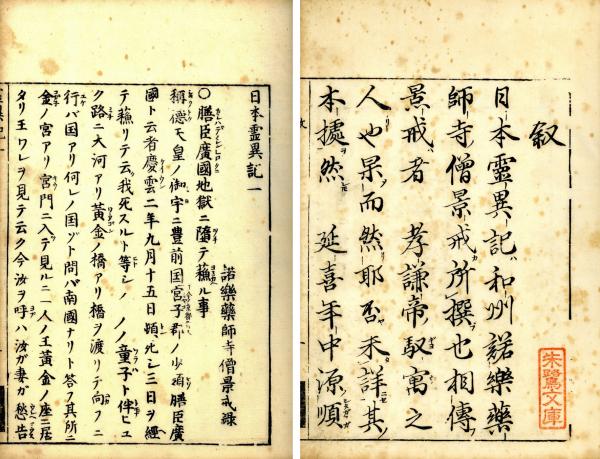 叙
日本靈異記和州諾樂藥
師寺僧景戒所撰也相傳
景戒者 孝謙帝馭寓之
人也果而然耶否未詳其
本據然 延喜年中源順
朱鷺文庫
日本靈異記一
諾樂藥師寺僧景戒錄
○膳臣廣國地獄ニ墮テ蘓ル事
稱德天皇ノ御宇ニ豊前国宮子郡ノ少領膳臣廣
國ト云者慶雲二年九月十五日頓ニ死シ三日ヲ經
テ蘓リテ云我死スルト等シ 童子ト伴ヒユ
ク路ニ大河アリ黃金ノ橋アリ橋ヲ渡リテ向フニ
行バ国アリ何レノ国ゾト問バ南國ナリト答フ其所ニ
金ノ宮アリ宮門ニ入テ見ルニ一人ノ王黃金ノ座ニ居
タリ王ワレヲ見テ云ク今汝ヲ呼ハ汝ガ妻ガ愁告